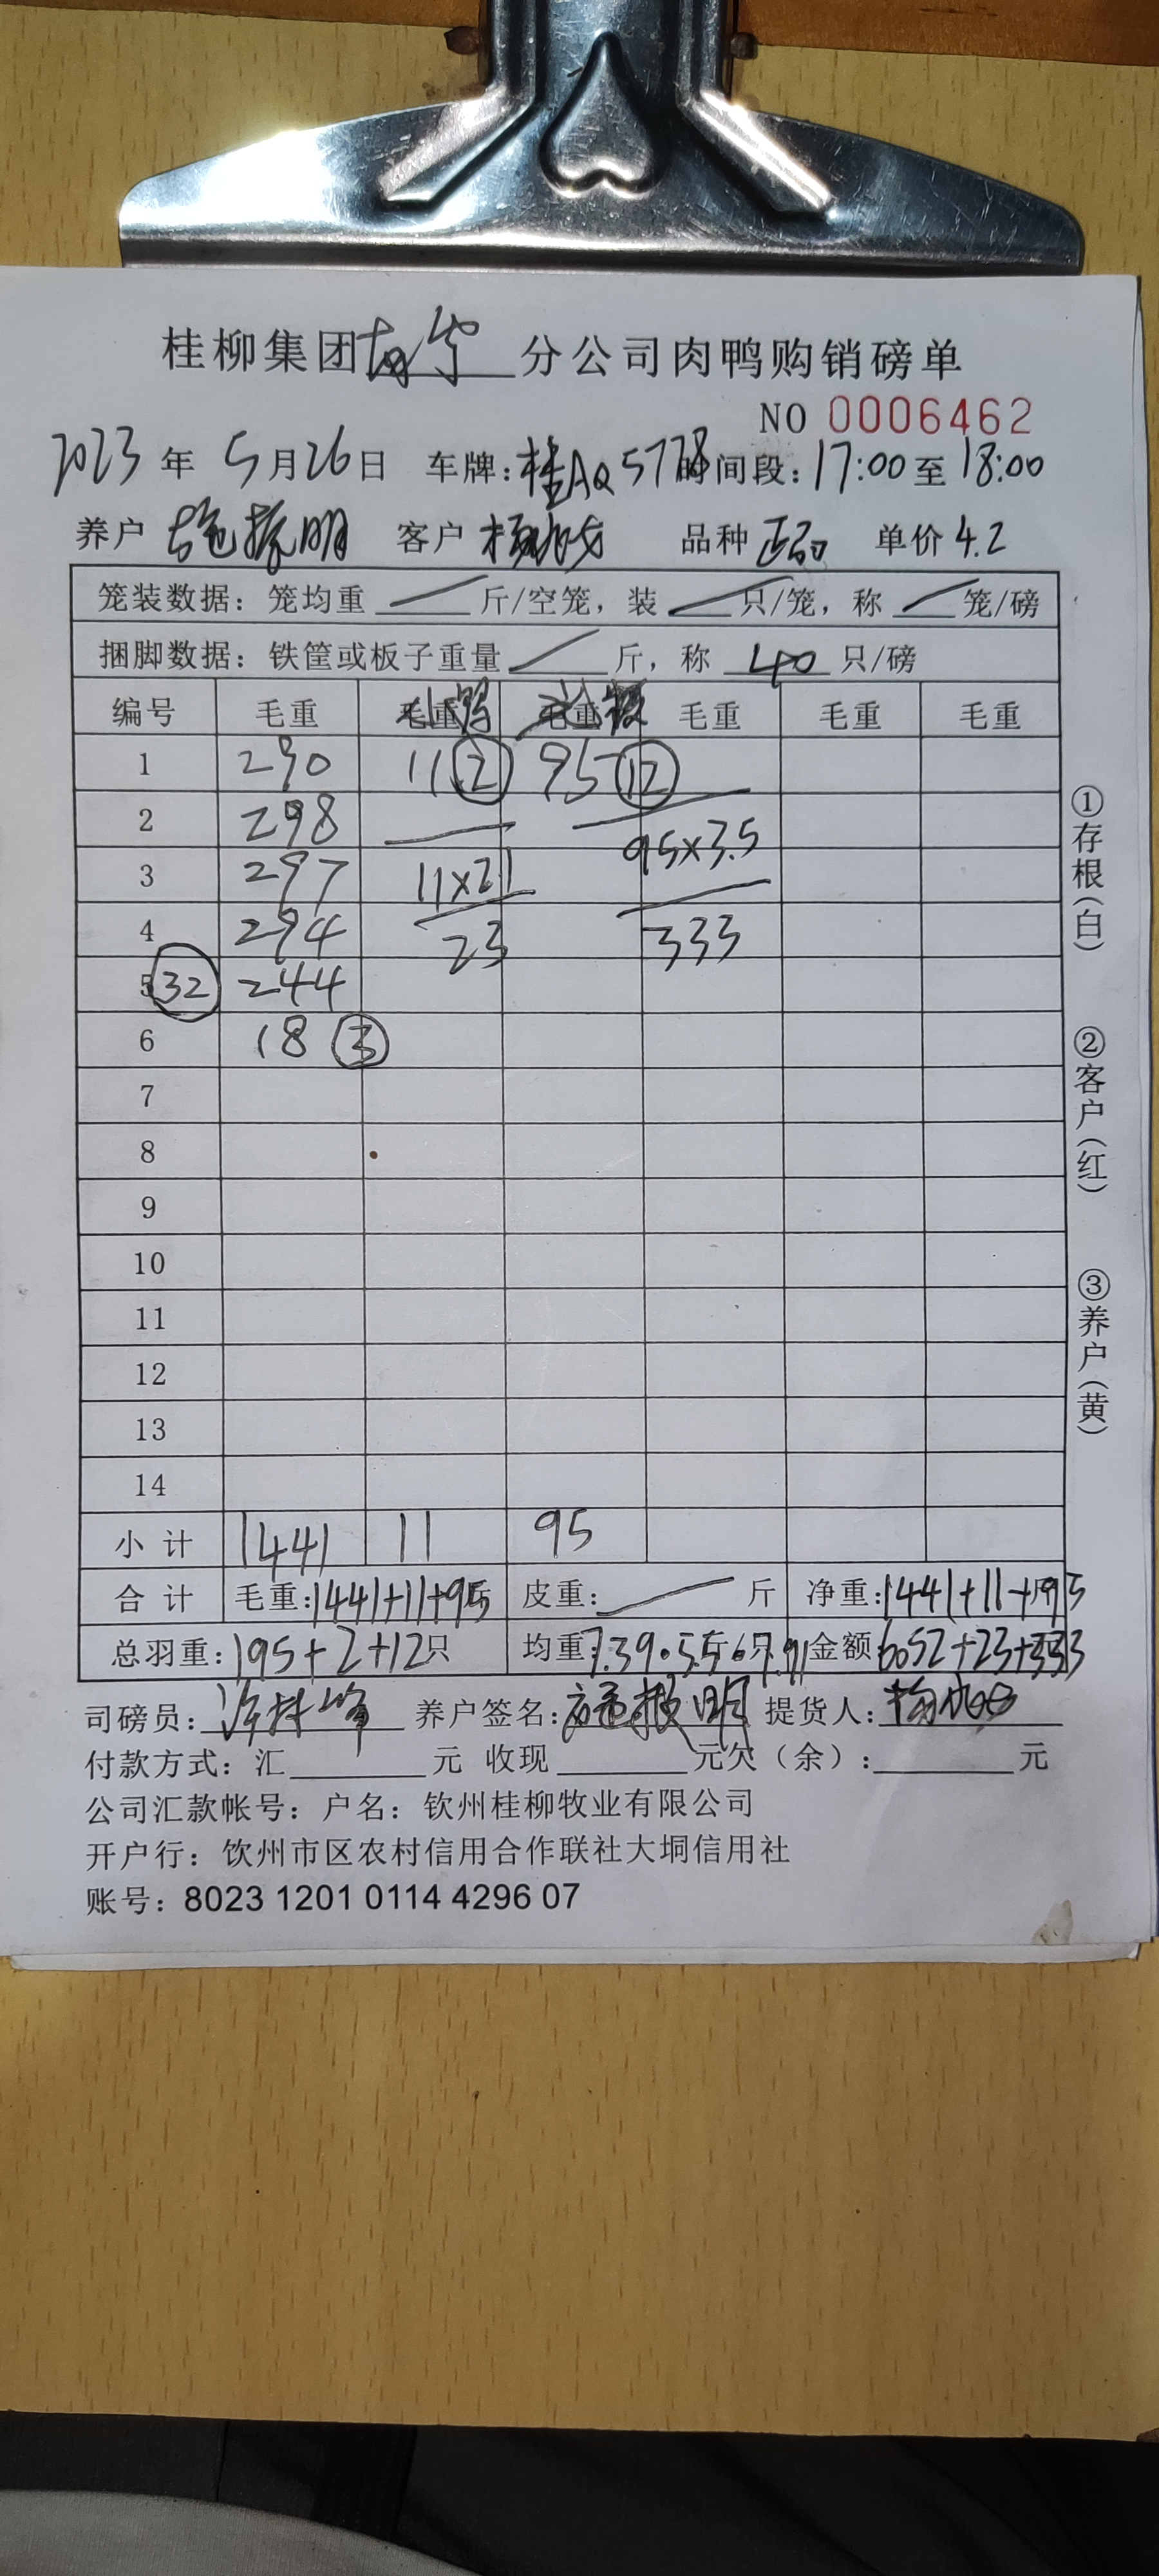 桂柳集团南宁分公司肉鸭购销磅单
NO 0006462
2023年 5月26日 车牌:桂AQ5778 时间段:17:00至18:00
养户 施振明 客户 品种 正品 单价4.2
笼装数据: 笼均重 斤/空笼, 装 只/笼, 称 笼/磅
捆脚数据: 铁筐或板子重量 斤, 称 40 只/磅
编号 毛重 毛重 毛重 毛重 毛重 毛重
1 290 11 ② 95 ⑫
2 298
3 297 11×2.1 95×3.5
4 294 23 333
5 ㉜ 244
6 18 ③
7
8
9
10
11
12
13
14
小计 1441 11 95
合计 毛重:1441+11+95斤 皮重: 斤 净重:1441+11+95
总羽重:195+2+12只 均重7.39.5.5.7.91 金额6052+23+333
司磅员: 养户签名:施振明 提货人:
付款方式: 汇 元 收现 元欠(余): 元
公司汇款帐号: 户名: 钦州桂柳牧业有限公司
开户行: 钦州市区农村信用合作联社大垌信用社
账号: 8023 1201 0114 4296 07
①存根(白)
②客户(红)
③养户(黄)